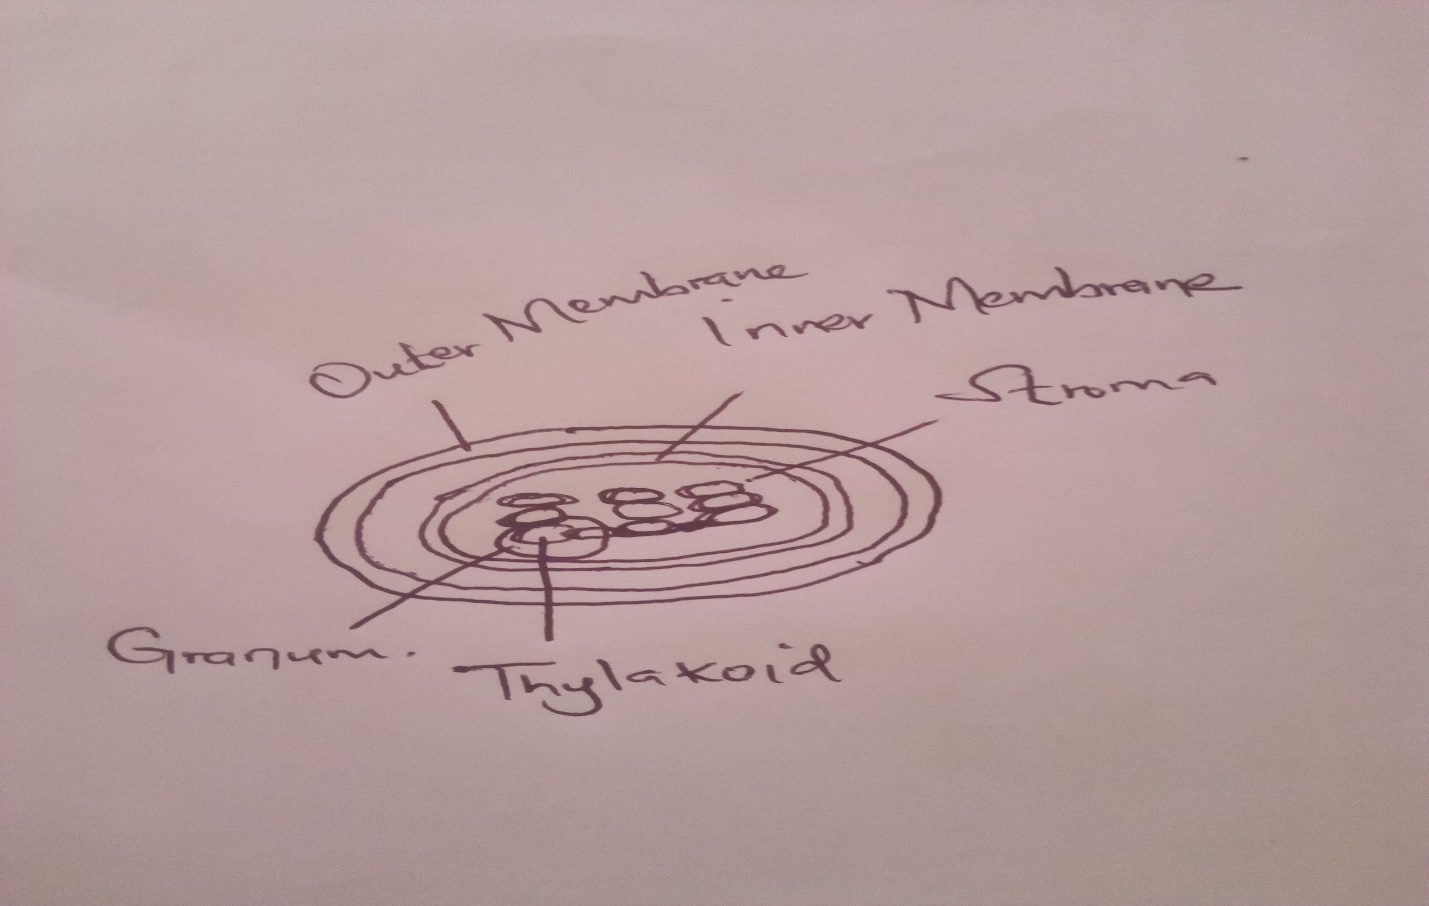 Outer Membrane
Inner Membrane
Stroma
Granum.
Thylakoid